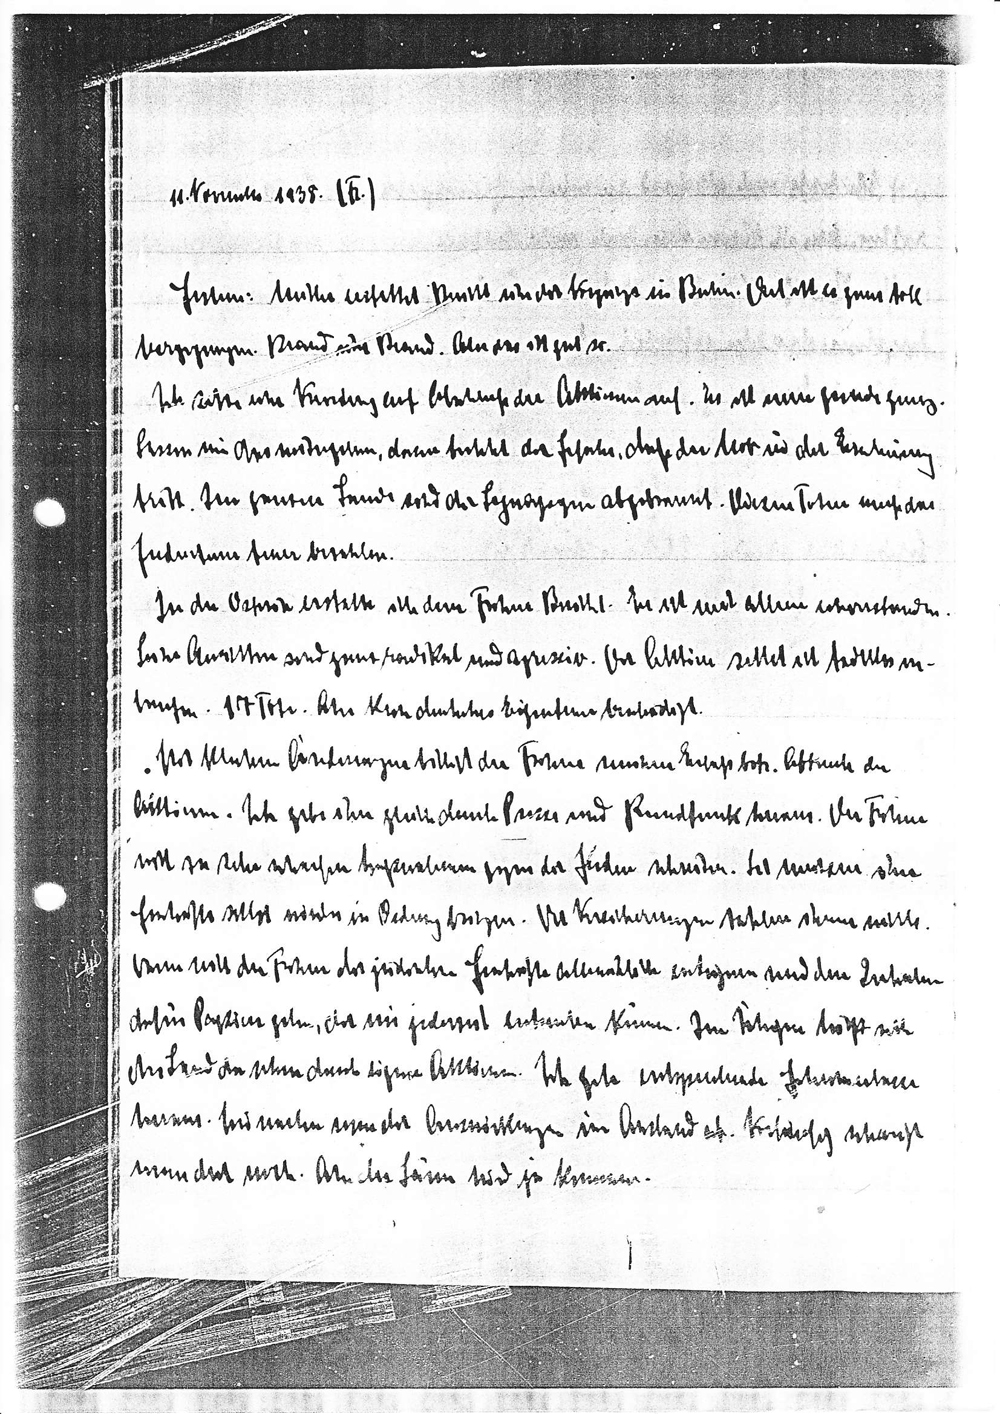 11. November 1938. (Fr.)
Gestern: Müller erstattet Bericht über die Vorgänge in Berlin. Dort ist es ganz toll
vorgegangen. Brand über Brand. Aber das ist gut so.
Ich setze eine Verordnung auf Abschluß der Aktionen auf. Es ist nun gerade genug.
Lassen wir das weitergehen, dann besteht die Gefahr, daß der Mob in die Erscheinung
tritt. Im ganzen Lande sind die Synagogen abgebrannt. Diesen Toten muß das
Judentum teuer bezahlen.
In der Osteria erstatte ich dem Führer Bericht. Er ist mit allem einverstanden.
Seine Ansichten sind ganz radikal und agressiv. Die Aktion selbst ist tadellos ver-
laufen. 17 Tote. Aber kein deutsches Eigentum beschädigt.
Mit kleinen Änderungen billigt der Führer meinen Erlaß betr. Abbruch der
Aktionen. Ich gebe ihn gleich durch Presse und Rundfunk heraus. Der Führer
will zu sehr scharfen Maßnahmen gegen die Juden schreiten. Sie müssen ihre
Geschäfte selbst wieder in Ordnung bringen. Die Versicherungen zahlen ihnen nichts.
Dann will der Führer die jüdischen Geschäfte allmählich enteignen und den Inhabern
dafür Papiere geben, die wir jederzeit entwerten können. Im Übrigen hilft sich
das Land da schon durch eigene Aktionen. Ich gebe entsprechende Geheimerlasse
heraus. Wir warten nun die Auswirkungen im Ausland ab. Vorläufig schweigt
man dort noch. Aber der Lärm wird ja kommen.